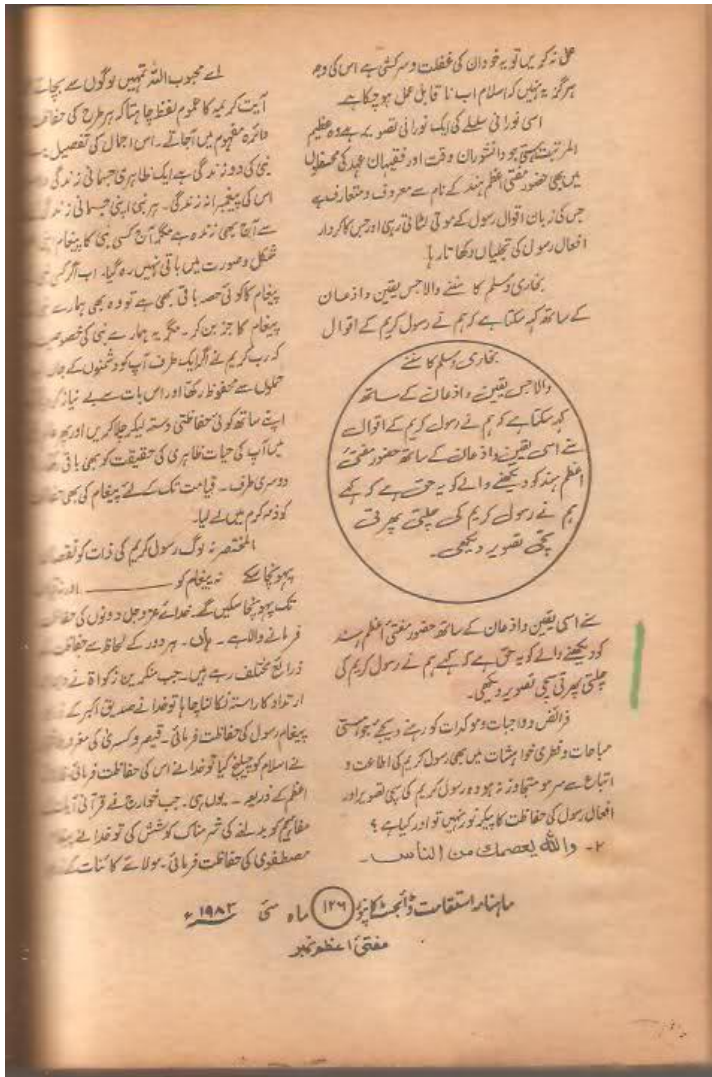 عمل نہ کریں تو یہ خود ان کی غفلت و سرکشی ہے اس کی وجہ
ہرگز یہ نہیں کہ اسلام اب ناقابل عمل ہو چکا ہے
اسی نورانی سلسلے کی ایک نورانی تصویر ہے وہ عظیم
المرتبت ہستی جو دانشوران وقت اور فقیہان عہد کی محفلوں
میں بھی حضور مفتی اعظم ہند کے نام سے معروف و متعارف ہے
جس کی زبان اقوال رسول کے موتی لٹاتی رہی اور جس کا کردار
افعال رسول کی تجلیاں دکھاتا رہا
بخاری و مسلم کا سننے والا جس یقین و اذعان
کے ساتھ کہہ سکتا ہے کہ ہم نے رسول کریم کے اقوال
بخاری و مسلم کا سننے
والا جس یقین و اذعان کے ساتھ
کہہ سکتا ہے کہ ہم نے رسول کریم کے اقوال
سنے اسی یقین و اذعان کے ساتھ حضور مفتیٔ
اعظم ہند کو دیکھنے والے کو یہ حق ہے کہ کہے
ہم نے رسول کریم کی چلتی پھرتی
سچی تصویر دیکھی۔
سنے اسی یقین و اذعان کے ساتھ حضور مفتیٔ اعظم ہند
کو دیکھنے والے کو یہ حق ہے کہ کہے ہم نے رسول کریم کی
چلتی پھرتی سچی تصویر دیکھی۔
فرائض و واجبات و موکدات کو رہنے دیجئے جو ہستی
مباحات و فطری خواہشات میں بھی رسول کریم کی اطاعت و
اتباع سے سرمو متجاوز نہ ہو وہ رسول کریم کی سچی تصویر اور
افعال رسول کی حفاظت کا پیکر نور نہیں تو اور کیا ہے ؟
۲- واللہ یعصمک من الناس۔
اے محبوب اللہ تمہیں لوگوں سے بچائے
آیت کریمہ کا عموم لفظ چاہتا کہ ہر طرح کی حفاظت
دائرہ مفہوم میں آجائے۔ اس اجمال کی تفصیل یہ
نبی کی دو زندگی ہے ایک ظاہری جسمانی زندگی
اس کی پیغمبرانہ زندگی۔ ہر نبی اپنی جسمانی زندگی
سے آج بھی زندہ ہے مگر آج کسی نبی کا پیغام اپنی
شکل و صورت میں باقی نہیں رہ گیا۔ اب اگر کسی
پیغام کا کوئی حصہ باقی بھی ہے تو وہ بھی ہمارے
پیغام کا جز بن کر۔ مگر یہ ہمارے نبی کی خصوصیت
کہ رب کریم نے اگر ایک طرف آپ کو دشمنوں کے
حملوں سے محفوظ رکھا اور اس بات سے بے نیاز
اپنے ساتھ کوئی حفاظتی دستہ لیکر چلا کریں اور پھر
میں آپ کی حیات ظاہری کی حقیقت کو بھی باقی
دوسری طرف۔ قیامت تک کے لئے پیغام کی بھی
کو ذمہ کرم میں لے لیا۔
المختصر نہ لوگ رسول کریم کی ذات کو نقصان
پہونچا سکے نہ پیغام کو ــــــــ اور نہ
تک پہونچا سکیں گے۔ خدائے عزوجل دونوں کی حفاظت
فرمانے والا ہے۔ ہاں۔ ہر دور کے لحاظ سے حفاظت
ذرائع مختلف رہے ہیں۔ جب منکرین زکواۃ نے
ارتداد کا راستہ نکالنا چاہا تو خدا نے صدیق اکبر کے
پیغام رسول کی حفاظت فرمائی۔ قیصر و کسریٰ کی
نے اسلام کو چیلنج کیا تو خدا نے اس کی حفاظت فرمائی
اعظم کے ذریعہ۔ یوں ہی۔ جب خوارج نے قرآنی آیات
مفاہیم کو بدلنے کی شرمناک کوشش کی تو خدا نے پیغام
مصطفوی کی حفاظت فرمائی۔ مولائے کائنات کے
ماہنامہ استقامت ڈائجسٹ کانپور ۱۲۶ ماہ مئی ۱۹۸۳ء
مفتیٔ اعظم نمبر